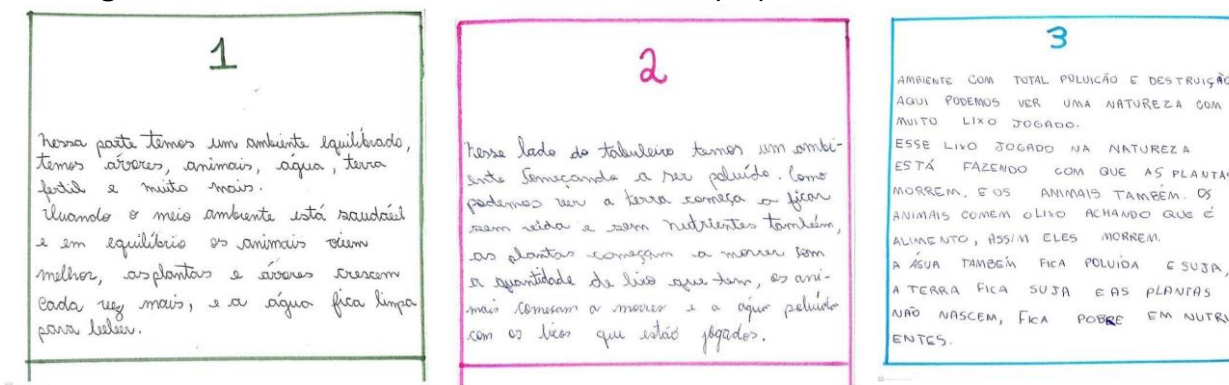 1
nessa parte temos um ambiente equilibrado,
temos árvores, animais, água, terra
fertil e muito mais.
Quando o meio ambiente está saudável
e em equilíbrio os animais vivem
melhor, as plantas e árvores crescem
cada vez mais, e a água fica limpa
para beber.
2
nesse lado do tabuleiro temos um ambi-
ente começando a ser poluído. Como
podemos ver a terra começa a ficar
sem vida e sem nutrientes também,
as plantas começam a morrer com
a quantidade de lixo que tem, os ani-
mais começam a morrer e a água poluída
com os lixos que estão jogados.
3
AMBIENTE COM TOTAL POLUIÇÃO E DESTRUIÇÃO
AQUI PODEMOS VER UMA NATUREZA COM
MUITO LIXO JOGADO.
ESSE LIXO JOGADO NA NATUREZA
ESTÁ FAZENDO COM QUE AS PLANTAS
MORREM. E OS ANIMAIS TAMBÉM. OS
ANIMAIS COMEM O LIXO ACHANDO QUE É
ALIMENTO, ASSIM ELES MORREM.
A ÁGUA TAMBÉM FICA POLUÍDA E SUJA,
A TERRA FICA SUJA E AS PLANTAS
NÃO NASCEM, FICA POBRE EM NUTRI
ENTES.